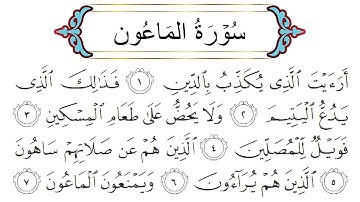 سُورَةُ المَاعُون
أَرَءَيْتَ ٱلَّذِى يُكَذِّبُ بِٱلدِّينِ ١ فَذَٰلِكَ ٱلَّذِى
يَدُعُّ ٱلْيَتِيمَ ٢ وَلَا يَحُضُّ عَلَىٰ طَعَامِ ٱلْمِسْكِينِ ٣
فَوَيْلٌ لِّلْمُصَلِّينَ ٤ ٱلَّذِينَ هُمْ عَن صَلَاتِهِمْ سَاهُونَ
٥ ٱلَّذِينَ هُمْ يُرَآءُونَ ٦ وَيَمْنَعُونَ ٱلْمَاعُونَ ٧